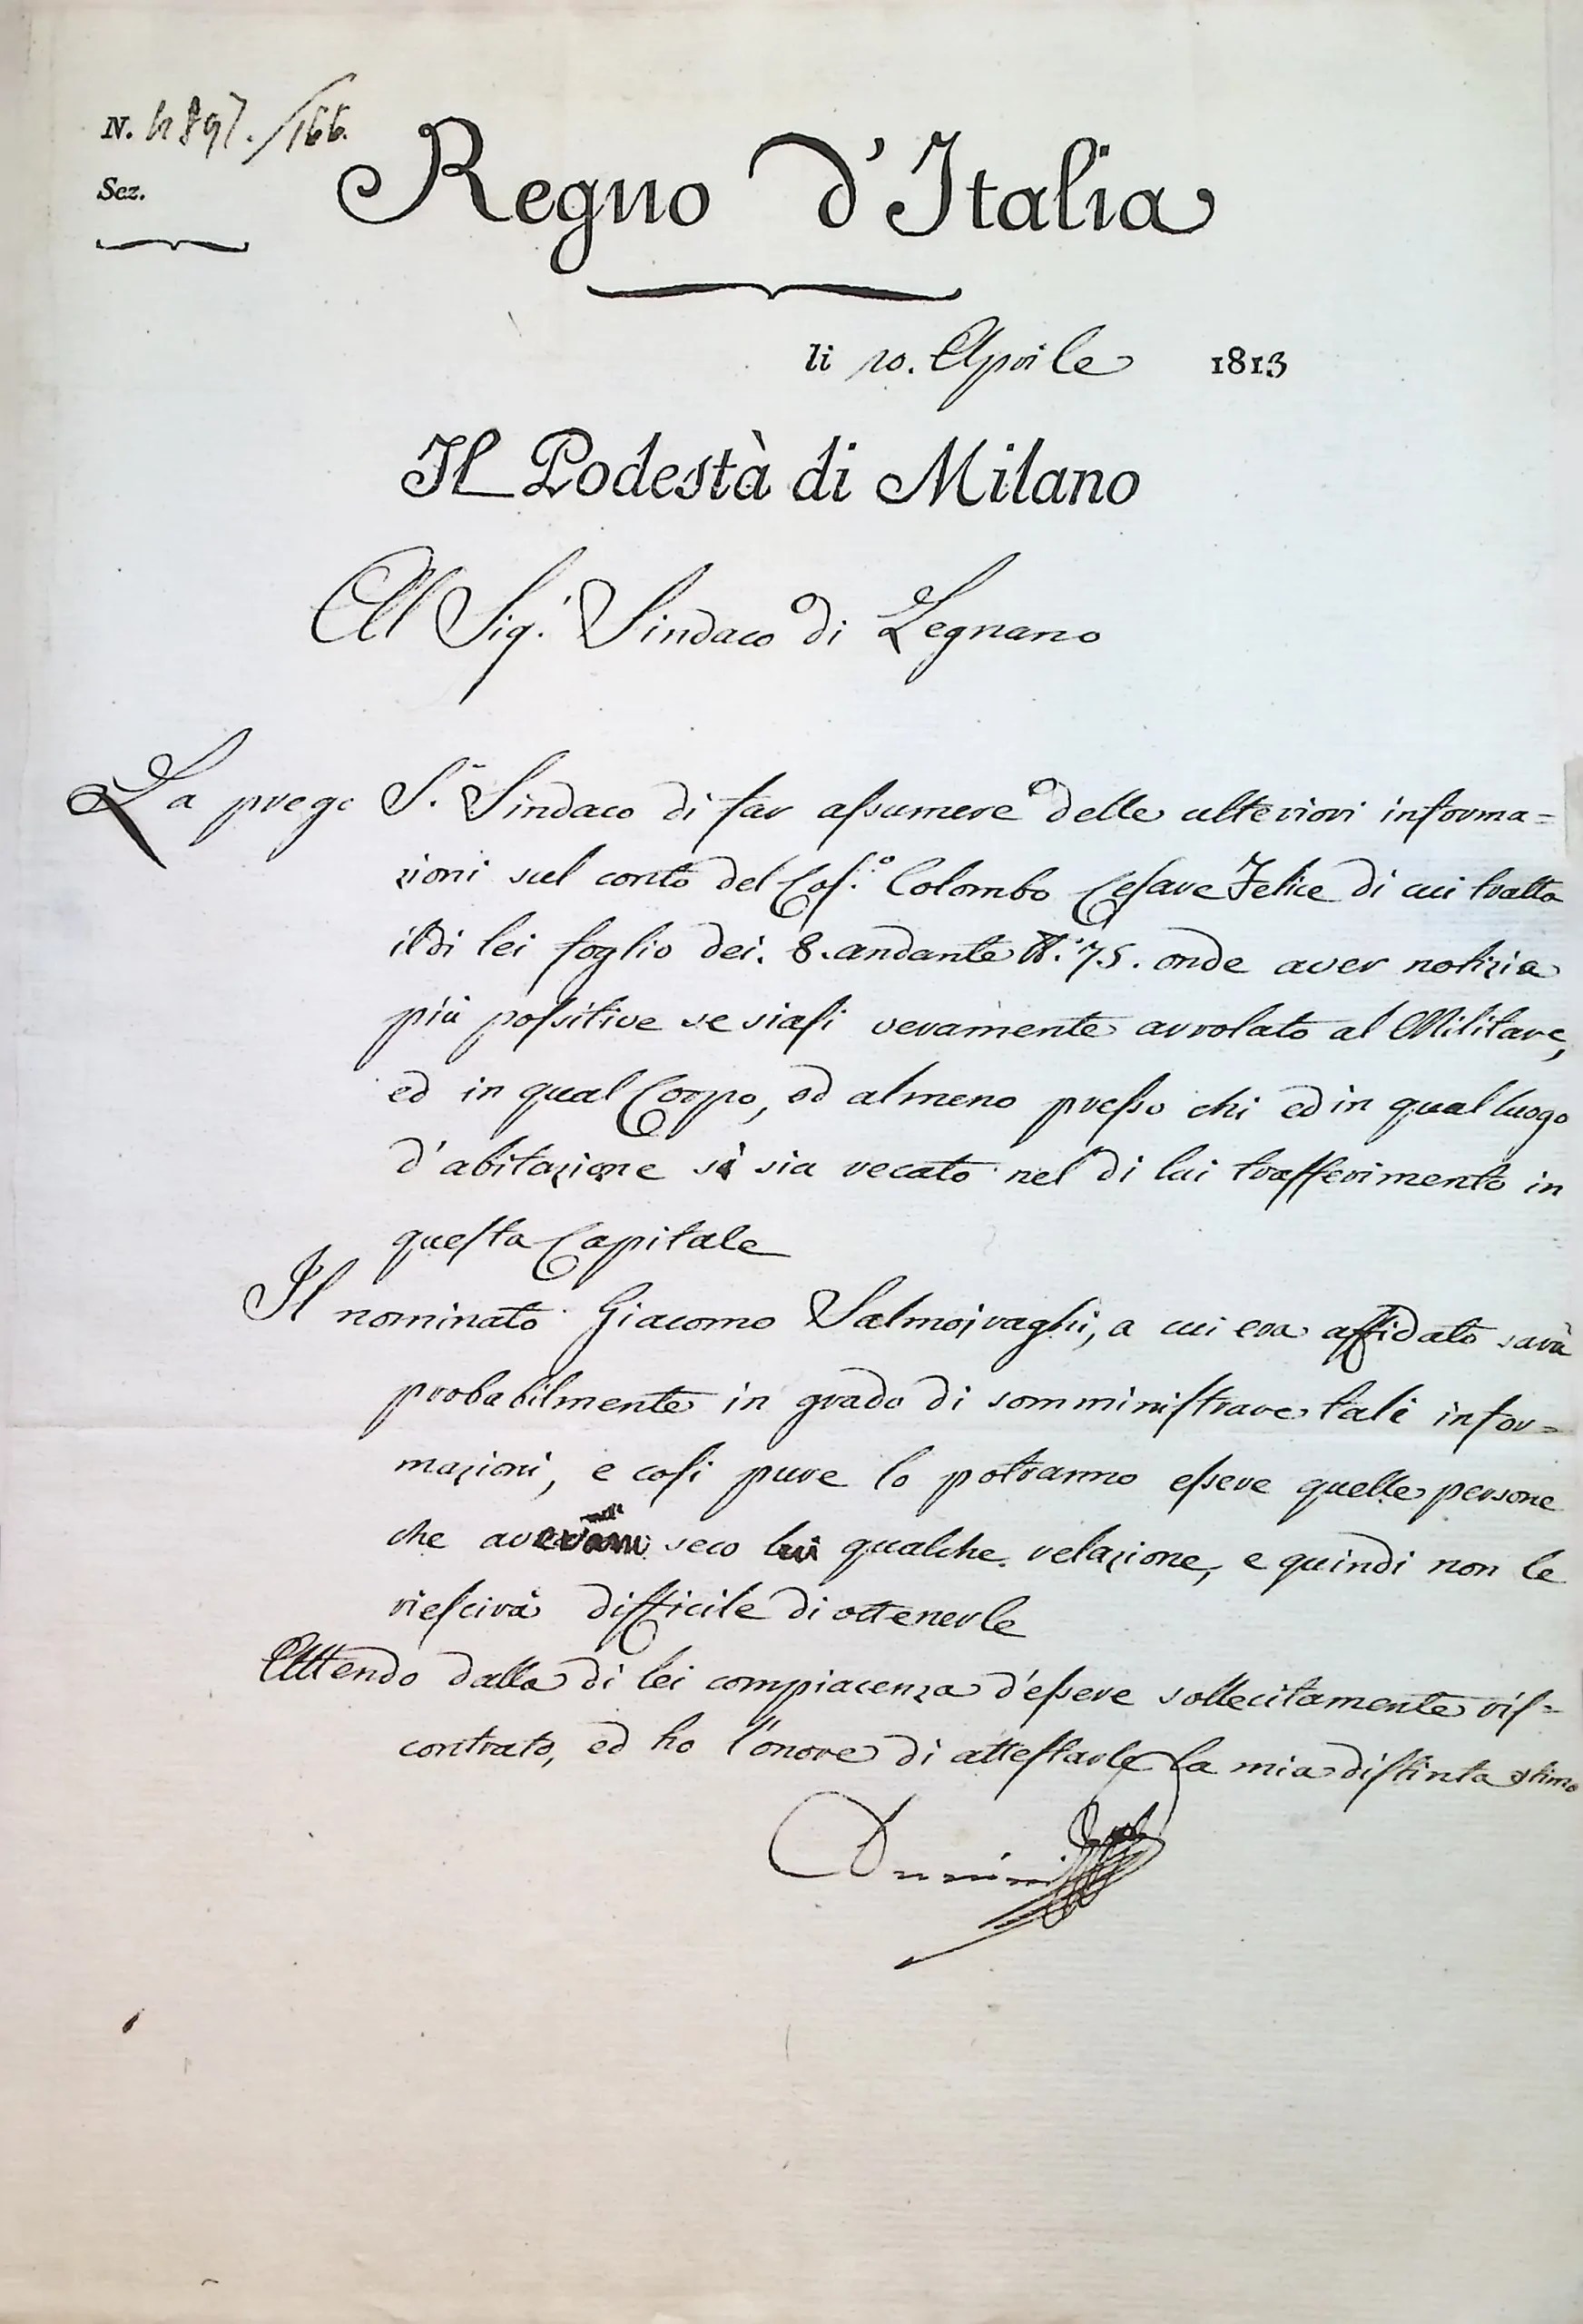 N. 4897./166.
Sez.
Regno d'Italia
li 10. Aprile 1813
Il Podestà di Milano
Al Sig.r Sindaco di Legnano
La prego S.r Sindaco di far assumere delle ulteriori informa=
zioni sul conto del Cos.o Colombo Cesare Felice di cui tratta
il di lei foglio dei. 8. andante N.° 75. onde aver notizia
più possitive se siasi veramente arrolato al Militare,
ed in qual Corpo, od almeno presso chi ed in qual luogo
d'abitazione si sia recato nel di lui trasferimento in
questa Capitale
Il nominato Giacomo Salmojraghi, a cui era affidato sarà
probabilmente in grado di somministrare tali infor=
mazioni, e così pure lo potranno essere quelle persone
che seco lui qualche relazione, e quindi non le
riescirà difficile di ottenerle
Attendo dalla di lei compiacenza d'essere sollecitamente ris=
contrato, ed ho l'onore di attestarle la mia distinta stima
Durini